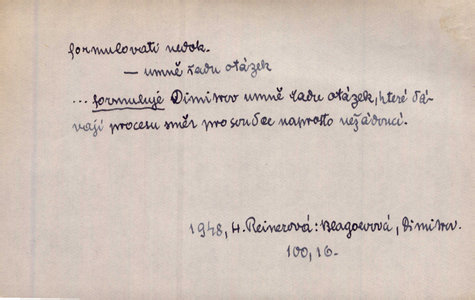 formulovati nedok.
— umně řadu otázek
... formuluje Dimitrov umně řadu otázek, které dá-
vají procesu směr pro soudce naprosto nežádoucí.
1948, H. Reinerová: Blagoevová, Dimitrov.
100, 16.